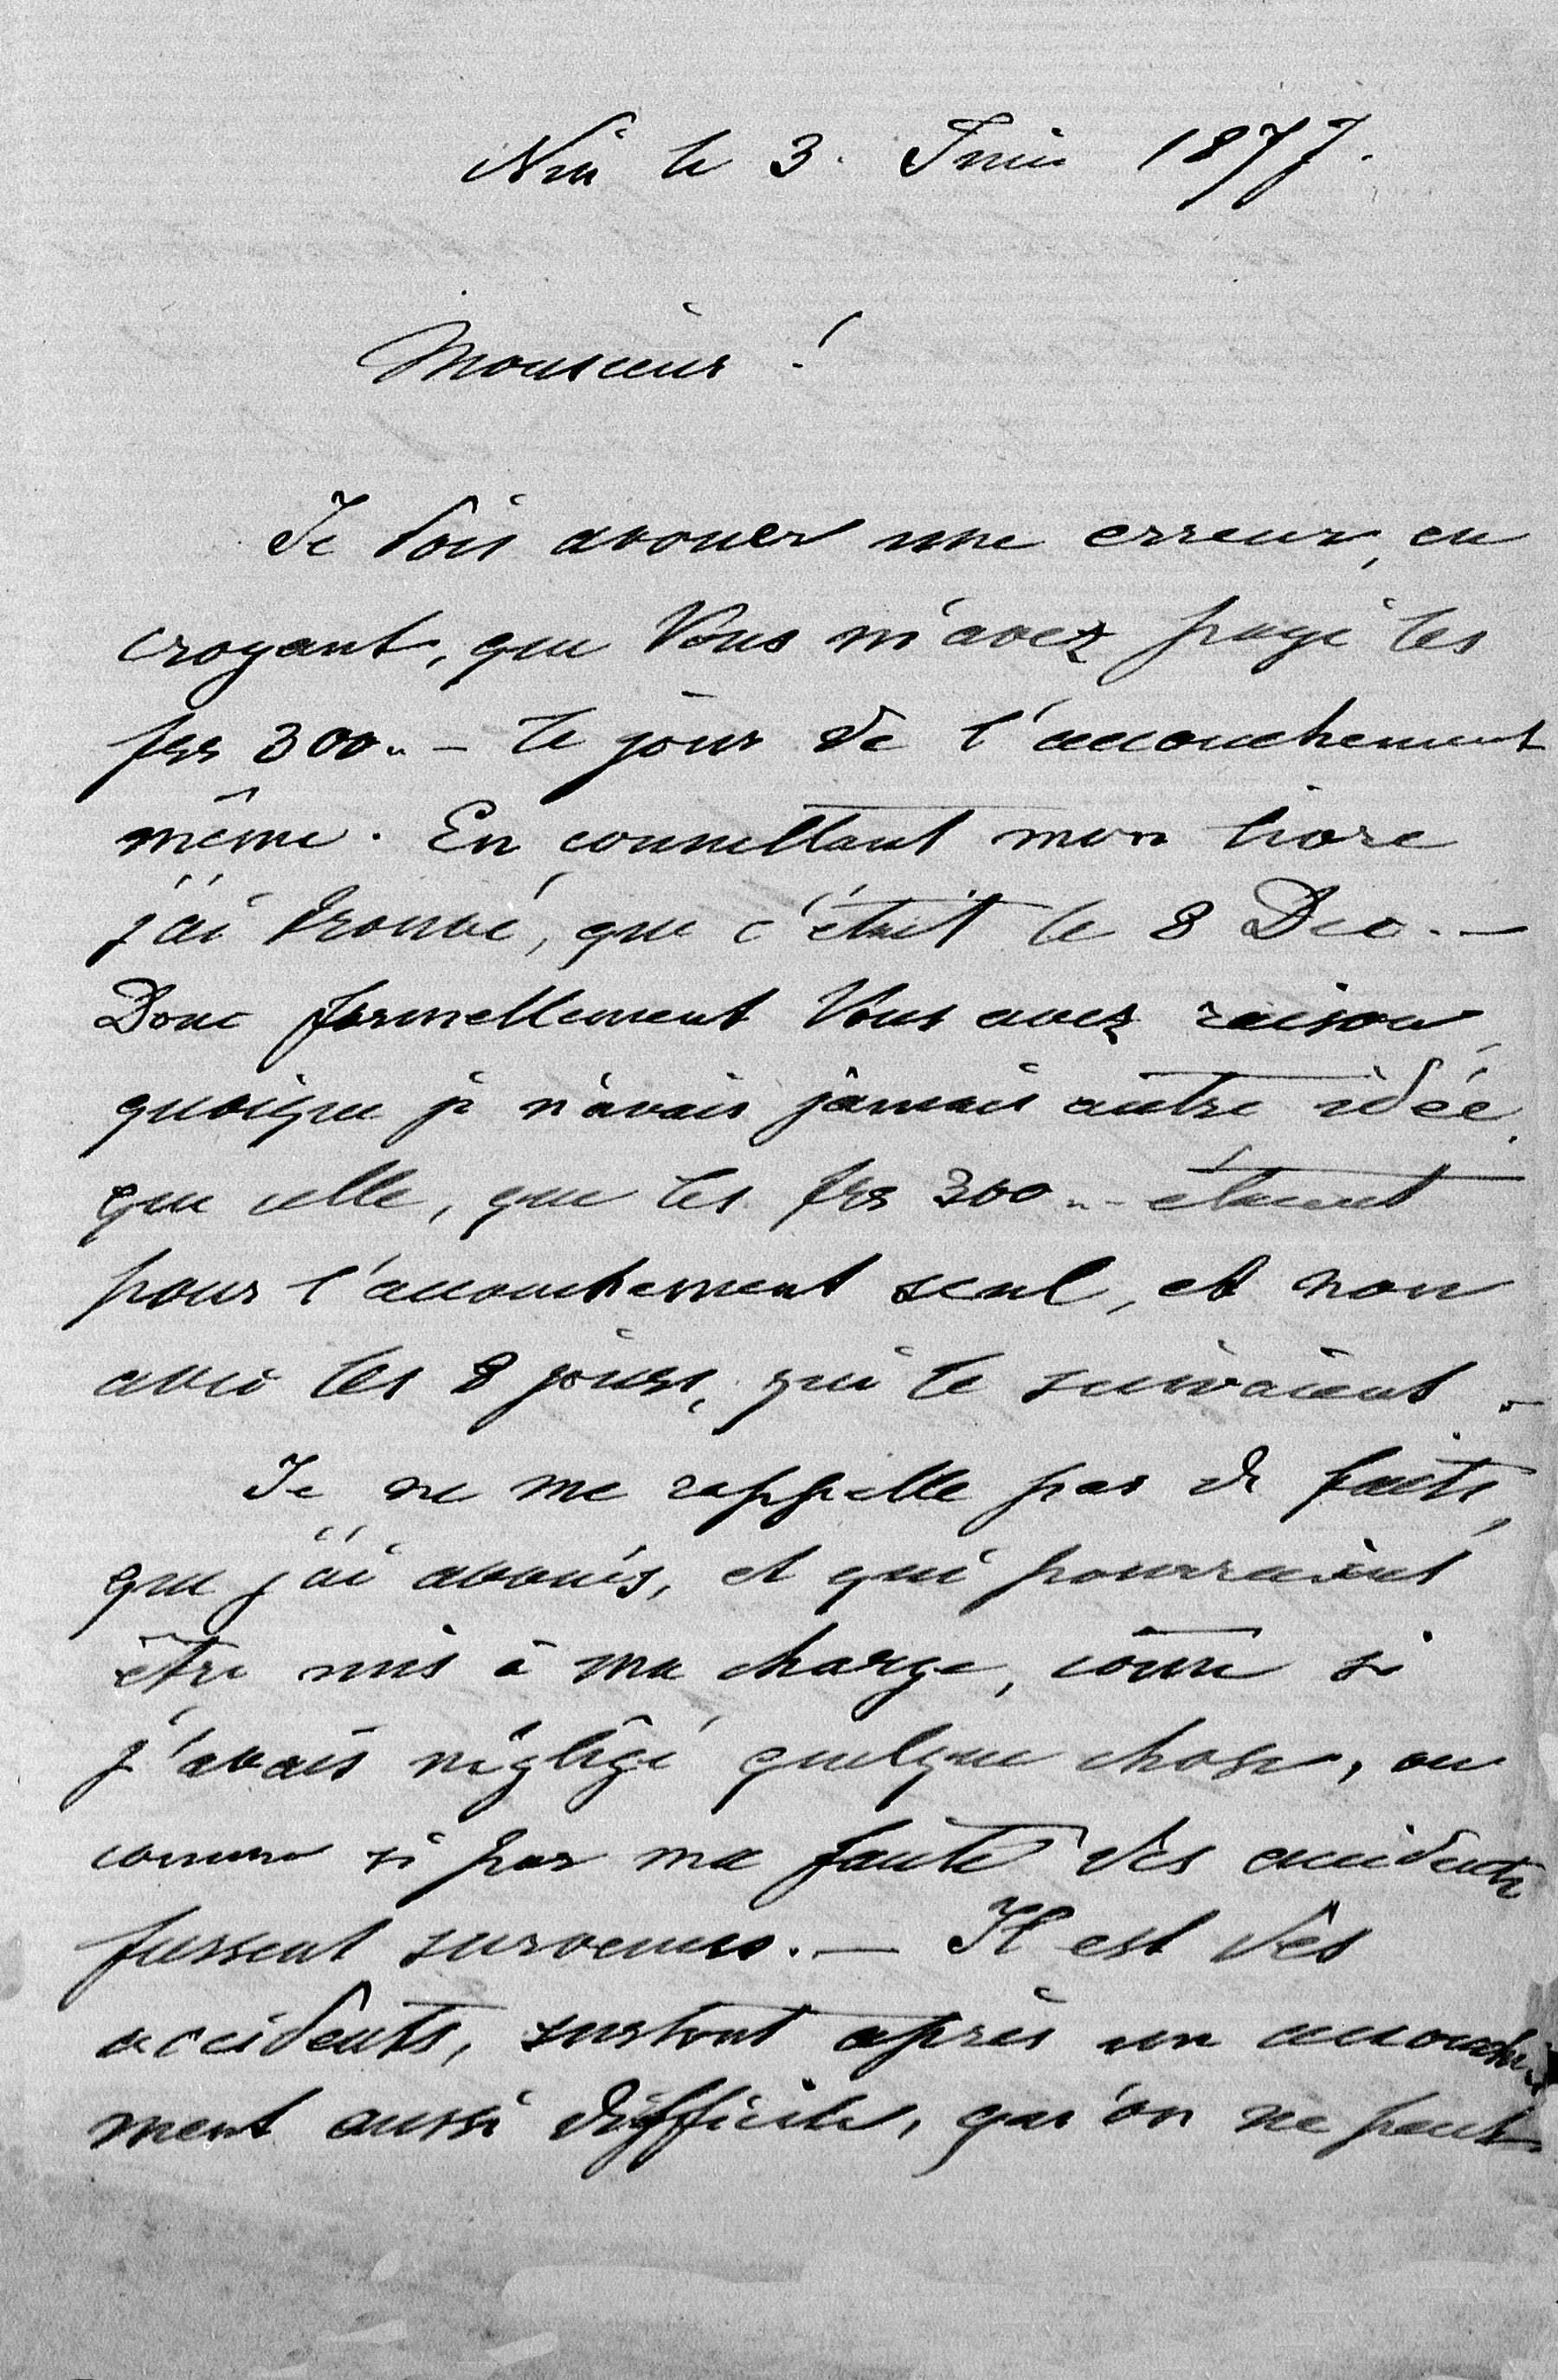 Nice le 3. Juin 1877.
Monsieur !
Je dois avouer une erreur, en
croyant, que Vous m'avez payé les
frs 300.- le jour de l'accouchement
même. En consultant mon livre
j'ai trouvé, que c'était le 8 Dec. —
Donc formellement Vous avez raison,
quoique je n'avais jamais autre idée,
que celle, que les frs 300.- étaient
pour l'accouchement seul, et non
avec les 8 jours, qui le suivaient.-
Je ne me rappelle pas de faits,
que j'ai avoués, et qui pourraient
être mis à ma charge, come si
j'avais négligé quelque chose, ou
comme si par ma faute des accidents
fussent survenus. — Il est des
accidents, surtout après un accouche-
ment aussi difficile, qu'on ne peut